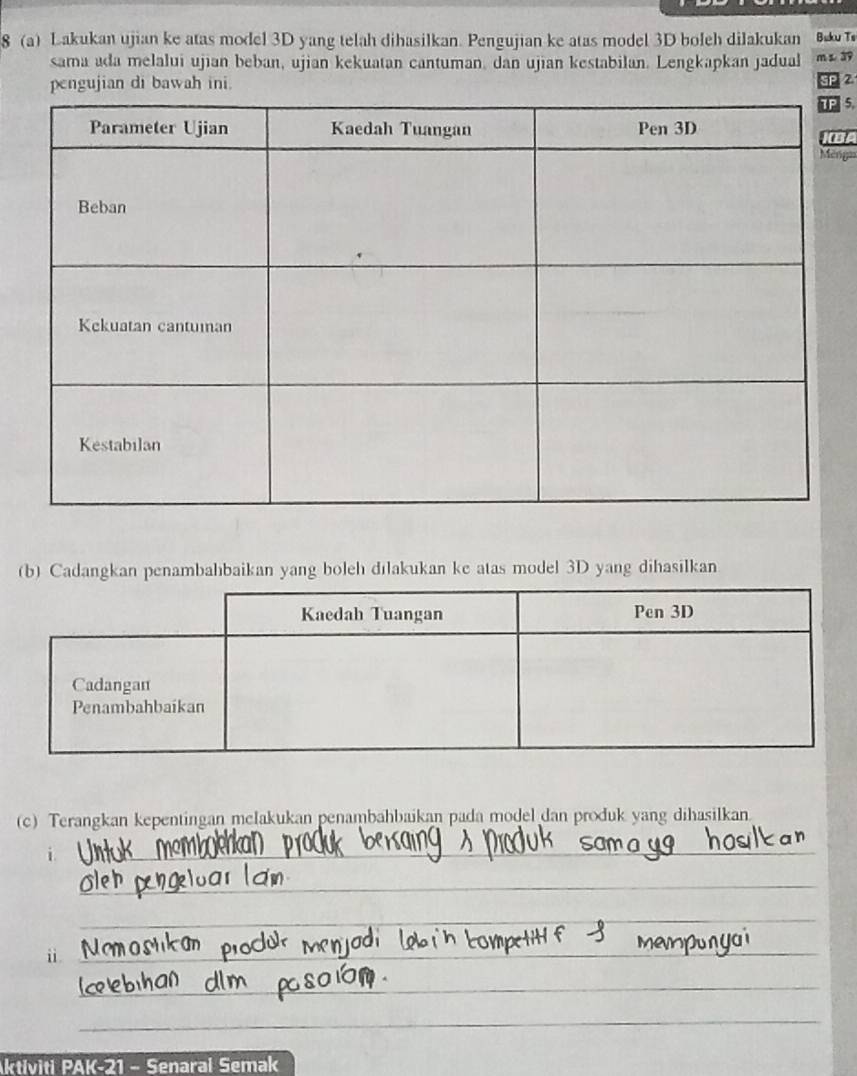 8 (a) Lakukan ujian ke atas model 3D yang telah dihasilkan. Pengujian ke atas model 3D boleh dilakukan
sama ada melalui ujian beban, ujian kekuatan cantuman, dan ujian kestabilan. Lengkapkan jadual
pengujian di bawah ini.
Buku Te
m.s. 39
SP 2.
TP 5,
KBA
Menga
Parameter Ujian Kaedah Tuangan Pen 3D
Beban
Kekuatan cantuman
Kestabilan
(b) Cadangkan penambahbaikan yang boleh dilakukan ke atas model 3D yang dihasilkan
Kaedah Tuangan Pen 3D
Cadangan
Penambahbaikan
(c) Terangkan kepentingan melakukan penambahbaikan pada model dan produk yang dihasilkan.
i. Untuk membolehkan produk bersaing produk sama yg hasilkan
oleh pengeluar lain.
ii. produk menjadi lebih kompetitif mempunyai
kelebihan dlm pasaran.
Aktiviti PAK-21 – Senarai Semak